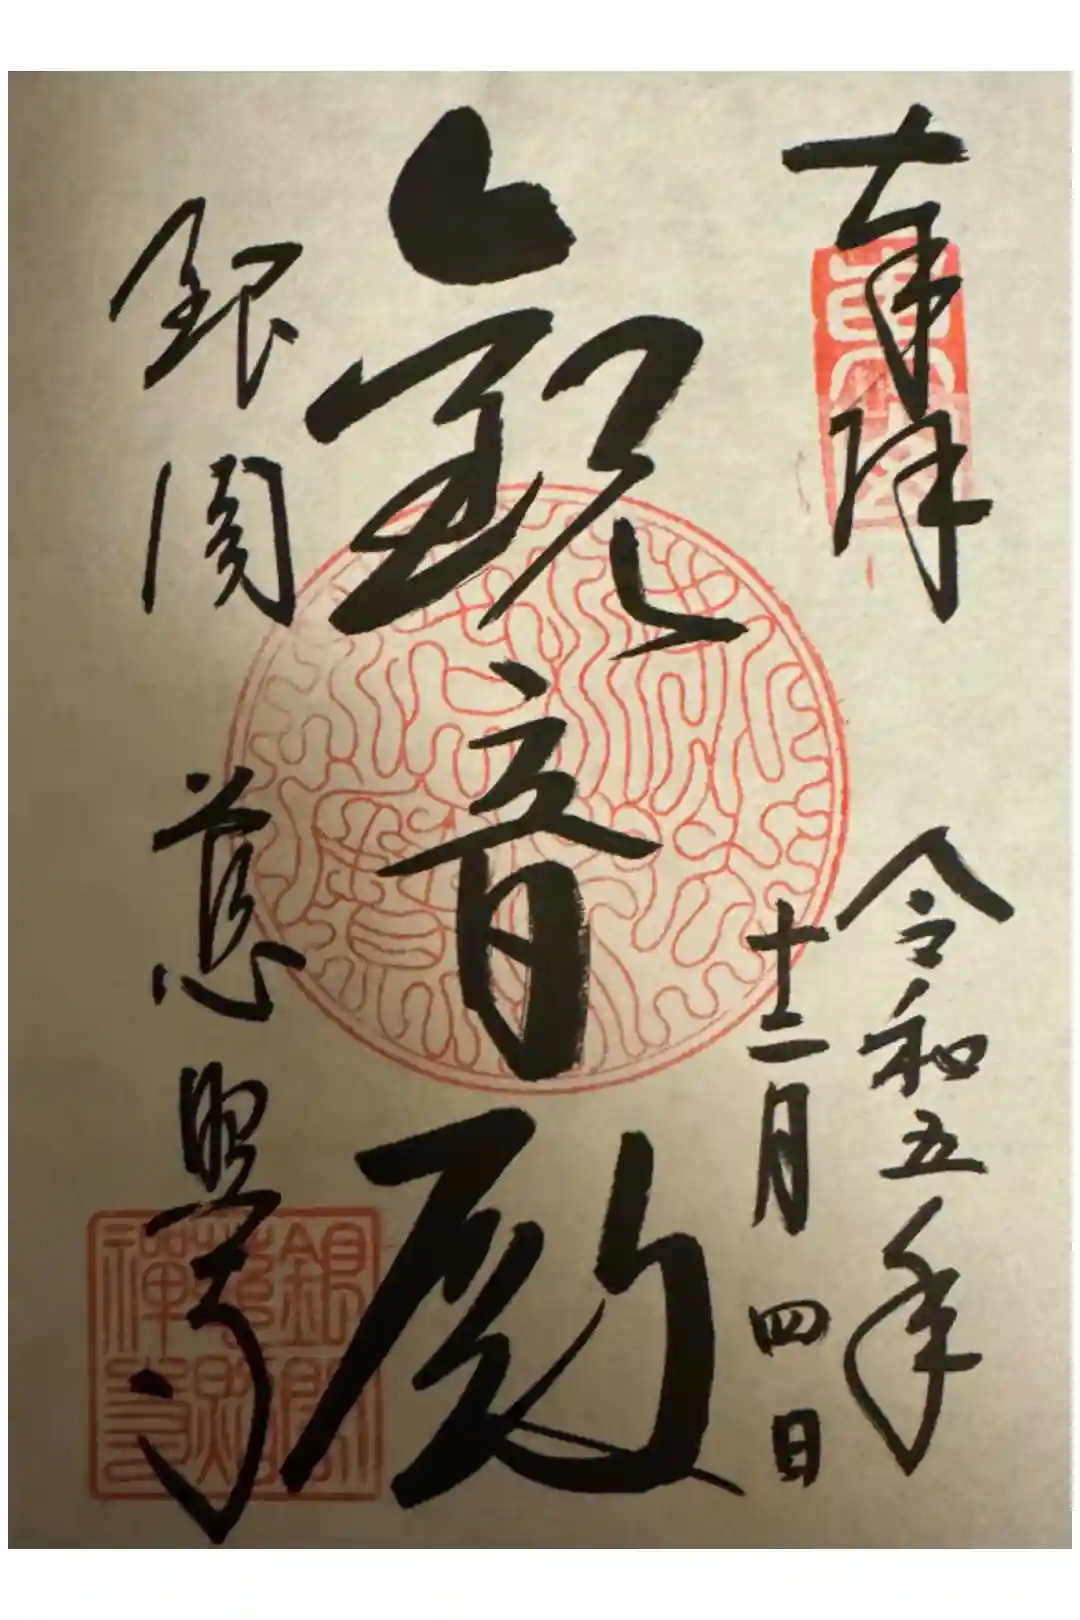 奉拝
令和五年
十二月四日
観音殿
銀閣 慈照寺
銀閣
慈照
禪寺